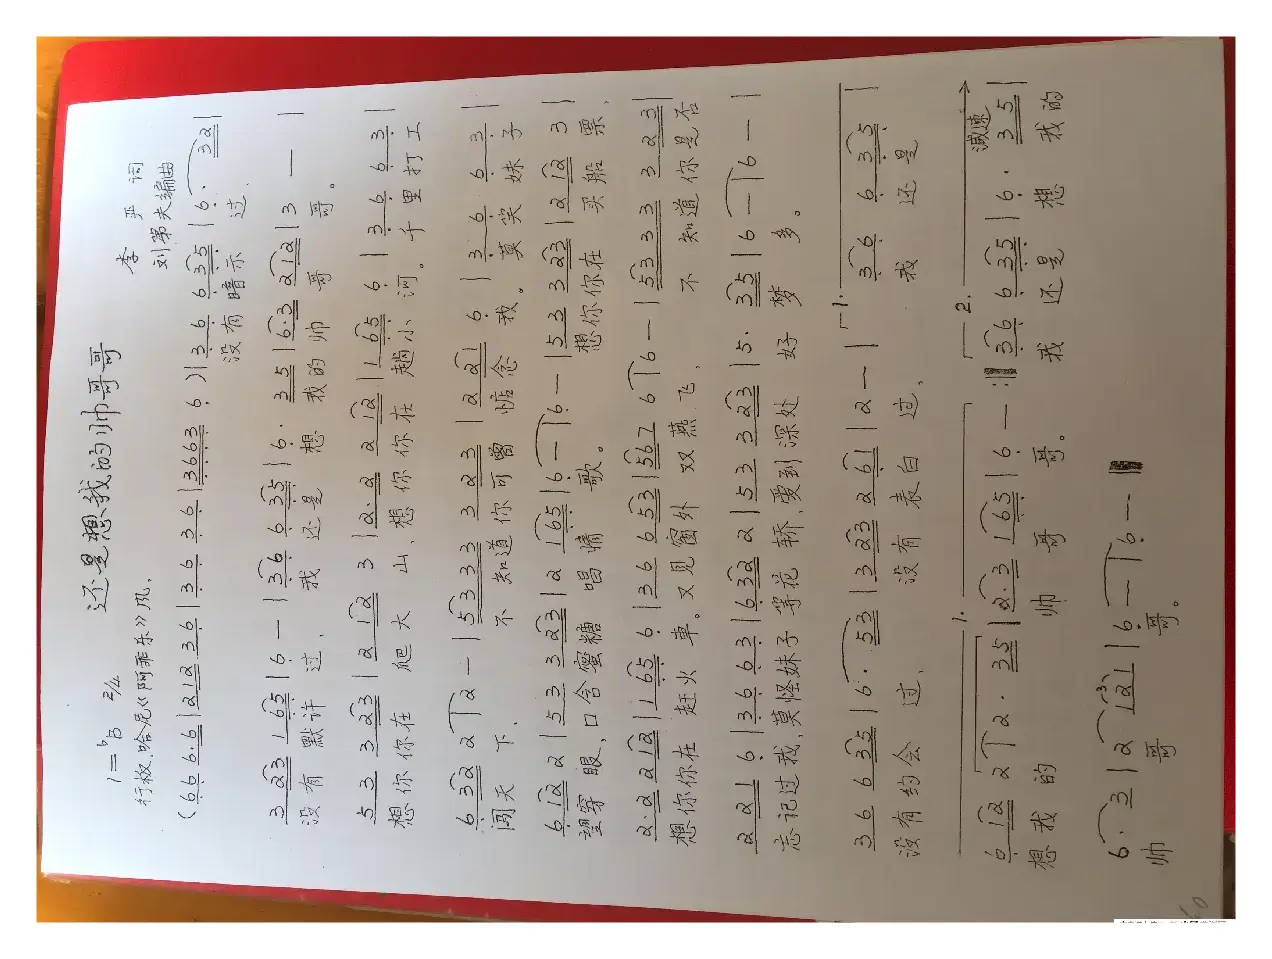 还是想我的帅哥哥
1=♭B 2/4
李严 词
行板.哈尼《阿乖乐》风.
刘第夫编曲
(6 6 6·6 | 2 1 2 3 6 | 3 6 3 6 | 3 6 6 3 6 ) | 3 6 6 3 5 | 6· 3 2 |
没有暗示过.
3 2 3 1 6 5 | 6 — | 3 6 6 3 5 | 6· 3 5 | 6·3 2 1 2 | 3 — |
没有默许过, 我还是想我的帅哥哥。
5 3 3 2 3 | 2 1 2 3 | 2·2 2 1 2 | 1 6 5 6 | 3 6 6 3 |
想你你在爬大山,想你你在趟小河。千里打工
6 3 2 2 | 2 — | 5 3 3 3 3 2 3 | 2 2 1 6 | 3 6 6 3 |
闯天下, 不知道你可曾惦念我。莫笑妹子
6 1 2 2 | 5 3 3 2 3 | 2 1 6 5 | 6 — | 6 — | 5 3 3 2 3 | 2 1 2 3 |
望穿眼,口含蜜糖唱情歌。想你你在买船票,
2·2 2 1 2 | 1 6 5 6 | 3 6 6 5 3 | 5 6 7 6 | 6 — | 5 3 3 3 3 2 3 |
想你你在赶火车。又见窗外双燕飞, 不知道你是否
2 2 1 6 | 3 6 6 3 | 6 3 2 2 | 5 3 3 2 3 | 5· 3 5 | 6 — | 6 — |
忘记过我,莫怪妹子等花轿,爱到深处好梦多。
3 6 6 3 5 | 6· 5 3 | 3 2 3 2 6 1 | 2 — | 1. 3 6 6 3 5 |
没有约会过, 没有表白过, 我还是
1. 2. 减速
6 1 2 2 | 2· 3 5 | 2·3 1 6 5 | 6 — :| 3 6 6 3 5 | 6· 3 5 |
想我的帅哥哥。我还是想我的
6· 3 | 2 1 2 1 | 6 — | 6 — |
帅哥哥。